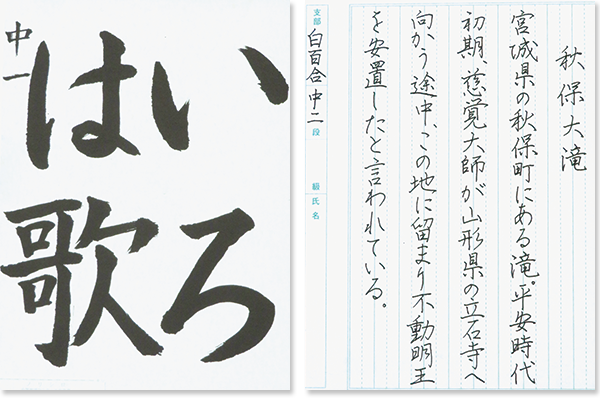 いろ
は歌
中一
秋保大滝
宮城県の秋保町にある滝。平安時代
初期、慈覚大師が山形県の立石寺へ
向かう途中、この地に留まり不動明王
を安置したと言われている。
支部 白百合 中二 段 級 氏名